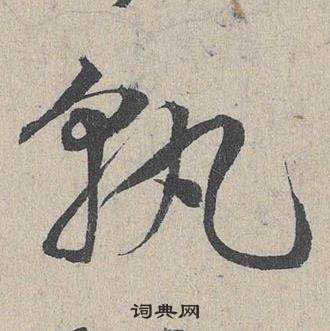 孰
词典网